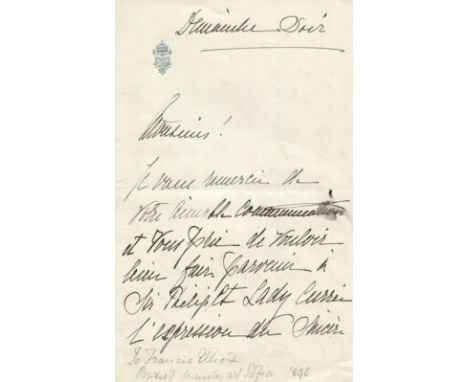 Dimanche Soir
Monsieur!
Je vous remercie de
votre aimable communication
et vous prie de vouloir
bien faire parvenir à
Sir Philip & Lady Currie
l'expression du sincère
To Francis Elliot
British Minister at Sofia 1896